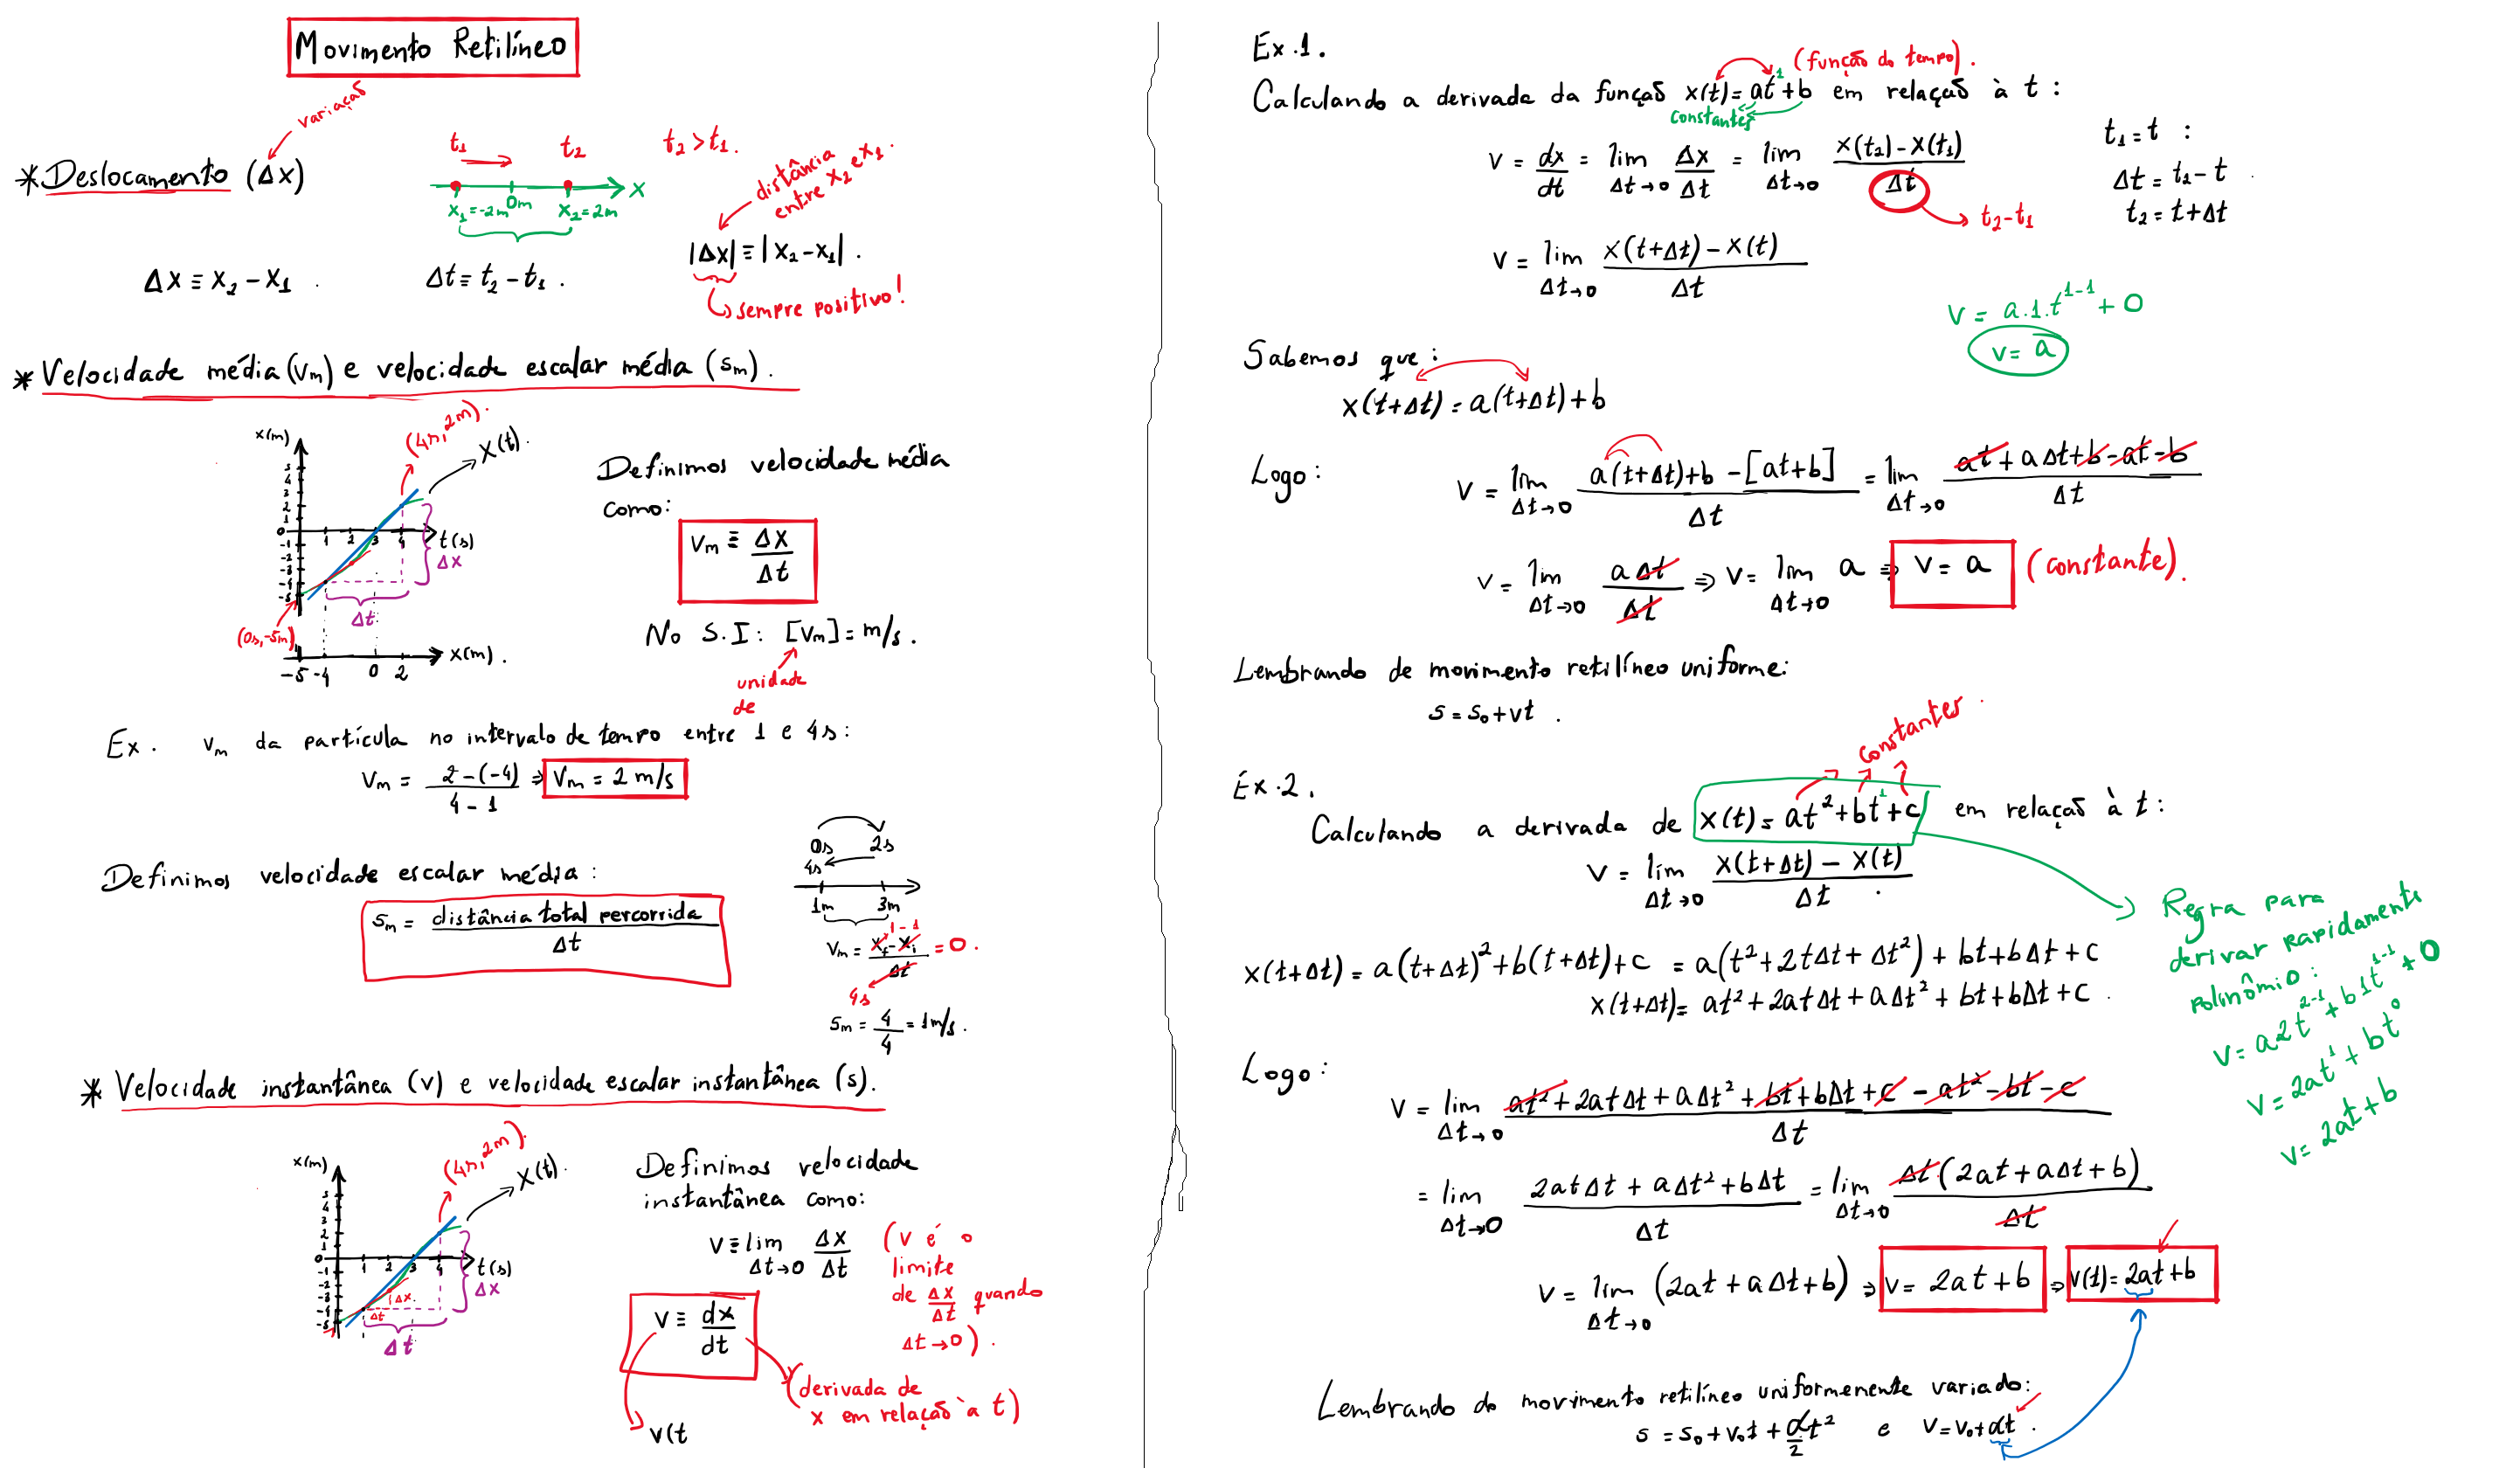 Movimento Retilíneo
variação
*Deslocamento (Δx)
t₁ t₂ t₂ > t₁.
x₁=-2m 0m x₂=2m x
distância entre x₂ e x₁.
|Δx| ≡ |x₂-x₁|.
sempre positivo!
Δx ≡ x₂ - x₁ Δt ≡ t₂ - t₁.
*Velocidade média (vₘ) e velocidade escalar média (sₘ).
x(m)
(4s, 2m).
x(t).
5
4
3
2
1
0
-1
-2
-3
-4
-5
1 2 3 4 t(s)
Δx
Δt
(0s,-5m)
-5 -4 0 2 x(m).
Definimos velocidade média
como:
vₘ ≡ Δx/Δt
No S.I: [vₘ] = m/s.
unidade
de
Ex. vₘ da partícula no intervalo de tempo entre 1 e 4s:
vₘ = (2-(-4))/(4-1) ⇒ vₘ = 2 m/s
Definimos velocidade escalar média:
sₘ = distância total percorrida/Δt
0s 2s
4s
1m 3m
vₘ = (x_f - x_i)/Δt = 0.
1 - 1
4s
sₘ = 4/4 = 1m/s.
* Velocidade instantânea (v) e velocidade escalar instantânea (s).
x(m)
(4s, 2m).
x(t).
5
4
3
2
1
0
-1
-2
-3
-4
-5
1 2 3 4 t(s)
Δx
Δx.
Δt
Δt
Definimos velocidade
instantânea como:
v ≡ lim Δt→0 Δx/Δt
(v é o
limite
de Δx/Δt quando
Δt→0).
v ≡ dx/dt
(derivada de
x em relação à t)
v(t
Ex.1.
(função do tempo).
Calculando a derivada da função x(t)=at¹+b em relação à t:
constantes
v = dx/dt = lim Δt→0 Δx/Δt = lim Δt→0 (x(t₂)-x(t₁))/Δt
t₂-t₁
t₁=t :
Δt = t₂-t.
t₂ = t+Δt
v = lim Δt→0 (x(t+Δt)-x(t))/Δt
v = a.1.t¹⁻¹ + 0
v = a
Sabemos que:
x(t+Δt) = a(t+Δt)+b
Logo:
v = lim Δt→0 (a(t+Δt)+b-[at+b])/Δt = lim Δt→0 (at+aΔt+b-at-b)/Δt
v = lim Δt→0 aΔt/Δt ⇒ v = lim Δt→0 a ⇒ v = a (constante).
Lembrando de movimento retilíneo uniforme:
s = s₀+vt.
constantes.
Éx.2.
Calculando a derivada de x(t) = at²+bt¹+c em relação à t:
v = lim Δt→0 (x(t+Δt) - x(t))/Δt.
x(t+Δt) = a(t+Δt)²+b(t+Δt)+c = a(t²+2tΔt+Δt²)+bt+bΔt+c
x(t+Δt) = at²+2atΔt+aΔt²+bt+bΔt+c.
Regra para
derivar rapidamente
polinômio:
v = a2t²⁻¹+b1t¹⁻¹+0
v = 2at¹+bt⁰
v = 2at+b
Logo:
v = lim Δt→0 (at²+2atΔt+aΔt²+bt+bΔt+c-at²-bt-c)/Δt
= lim Δt→0 (2atΔt+aΔt²+bΔt)/Δt = lim Δt→0 Δt(2at+aΔt+b)/Δt
v = lim Δt→0 (2at+aΔt+b) ⇒ v = 2at+b ⇒ v(t) = 2at+b
Lembrando do movimento retilíneo uniformenente variado:
s = s₀+v₀t+a/2 t² e v=v₀+at.